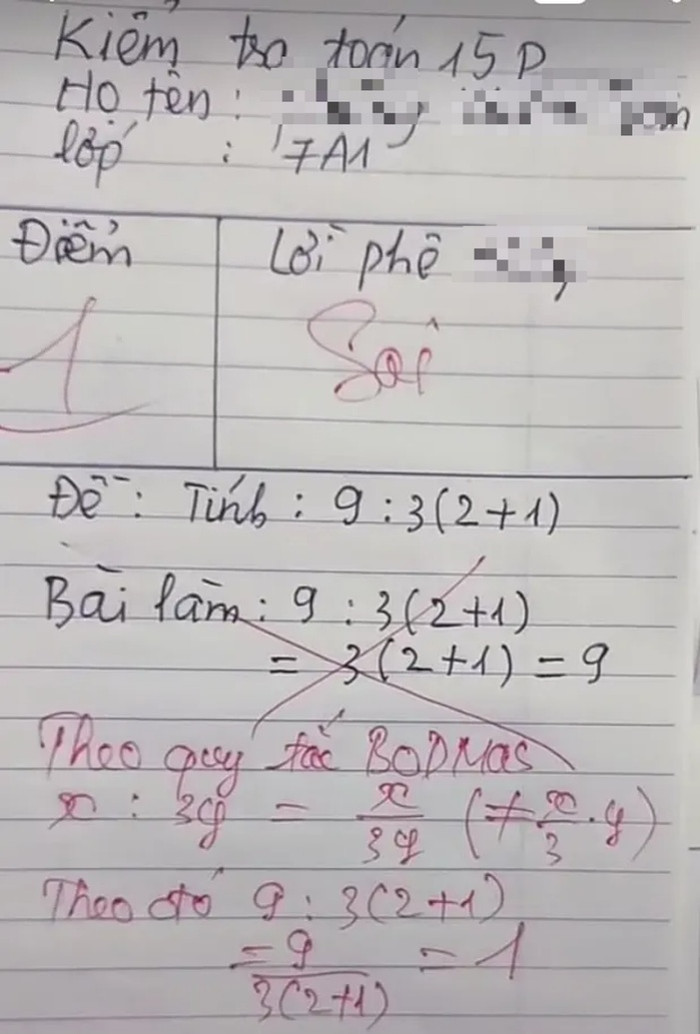 Kiểm tra toán 15P
Họ tên :
lớp : 7A1
Điểm
Lời phê
1
Sai
Đề : Tính : 9 : 3(2+1)
Bài làm : 9 : 3(2+1)
= 3(2+1) = 9
Theo quy tắc BODMAS
x : 3y = x/3y (≠ x/3 . y)
Theo đó 9 : 3(2+1)
= 9/3(2+1) = 1